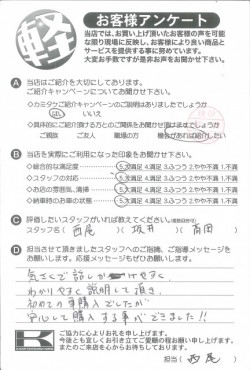 軽
お客様アンケート
当店では、お買い上げ頂いたお客様の声を可能
な限り現場に反映し、お客様により良い商品と
サービスを提供する事に努めています。
大変お手数ですが是非お声をお聞かせ下さい。
A 当店はご紹介を大切にしております。
ご紹介キャンペーンについてお聞かせ下さい。
ご紹介キャンペーンの説明はありましたでしょうか
はい いいえ
ご親族 ご友人 職場の方
B 当店を実際にご利用になった印象をお聞かせ下さい。
◇総合的な満足度 5.大満足 4.満足 3.ふつう 2.やや不満 1.不満
◇スタッフの対応 5.大満足 4.満足 3.ふつう 2.やや不満 1.不満
◇お店の雰囲気、清掃 5.大満足 4.満足 3.ふつう 2.やや不満 1.不満
◇納車時のお車の状態 5.大満足 4.満足 3.ふつう 2.やや不満 1.不満
C 評価したいスタッフがいれば教えてください。(複数回答可)
スタッフ名( 西尾 )( 坂井 )( 角田 )
D 担当させて頂きましたスタッフへのご指摘、ご指導メッセージを
お願いします。応援メッセージもお聞かせください!
気さくで話しかけやすく、
わかりやすく説明して頂き、
初めての車購入でしたが
安心して購入する事ができました!!
K
ご協力に心よりお礼を申し上げます。
今後とも宜しくお引き立てご愛顧の程お願い申し上げます。
またのご来店を心からお待ちしております。
担当( 西尾 )